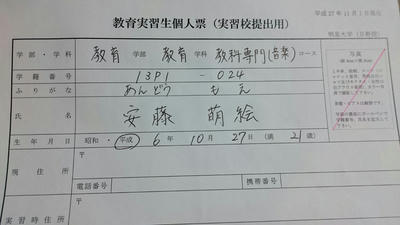 平成 27 年 11 月 1 日現在
教育実習生個人票（実習校提出用）
明星大学（日野校）
学部・学科 教育 学部 教育 学科 教科専門(音楽) コース
学籍番号 13P1-024
ふりがな あんどう もえ
氏名 安藤 萌絵
写真
生年月日 昭和・平成 6 年 10 月 27 日 (満 21 歳)
現住所 〒
電話番号 携帯番号
実習時住所 〒